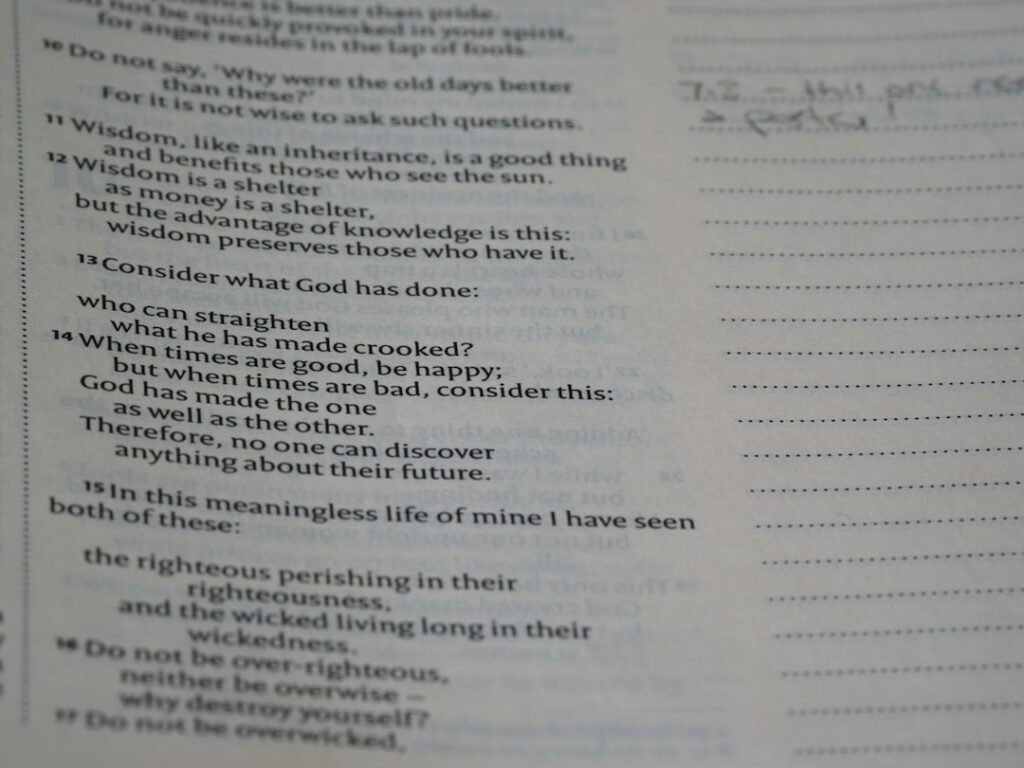 is better than pride.
not be quickly provoked in your spirit,
for anger resides in the lap of fools.
10 Do not say, 'Why were the old days better
than these?'
For it is not wise to ask such questions.
11 Wisdom, like an inheritance, is a good thing
and benefits those who see the sun.
12 Wisdom is a shelter
as money is a shelter,
but the advantage of knowledge is this:
wisdom preserves those who have it.
13 Consider what God has done:
who can straighten
what he has made crooked?
14 When times are good, be happy;
but when times are bad, consider this:
God has made the one
as well as the other.
Therefore, no one can discover
anything about their future.
15 In this meaningless life of mine I have seen
both of these:
the righteous perishing in their
righteousness,
and the wicked living long in their
wickedness.
16 Do not be over-righteous,
neither be overwise –
why destroy yourself?
17 Do not be overwicked,
7.2 – this one
a